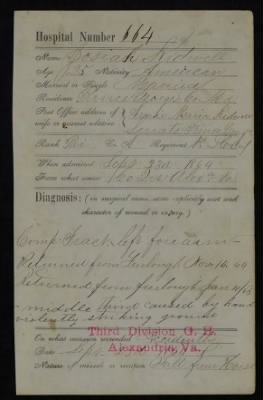 Hospital Number 664
Name Josiah Kidwell
Age 25 Nativity American
Married or Single Married
Residence Prince Georges Co Md
Post Office address of
wife or nearest relative
Rank Co. Regiment
When admitted Sept 23d 1864
From what source
Diagnosis: (in surgical cases state explicitly seat and
character of wound or injury.)
Comp. Frack left forearm
Returned from furlough Nov 16, 64
Returned from furlough Jan 11/65
middle third caused by hand
violently striking ground
On what occasion wounded Accidently
Third Division G. H.
Date Sept
Alexandria, Va.
Nature of missile or weapon Fall from Horse